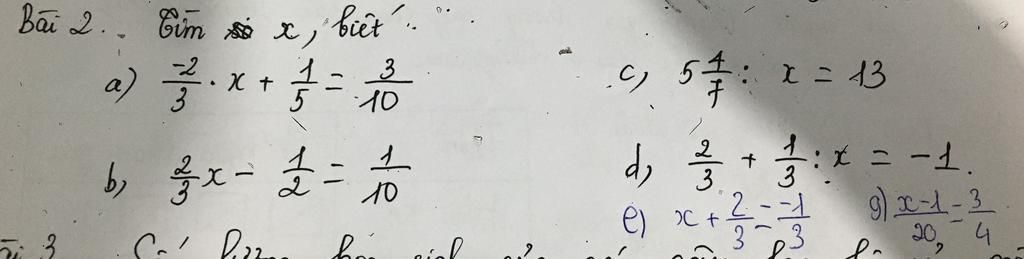 Bài 2. Tìm x, biết:
a) \frac{-2}{3} . x + \frac{1}{5} = \frac{3}{10}
c, 5\frac{4}{7} : x = 13
b, \frac{2}{3}x - \frac{1}{2} = \frac{1}{10}
d, \frac{2}{3} + \frac{1}{3} : x = -1.
e) x + \frac{2}{3} = \frac{-1}{3}
g) \frac{x-1}{20} = \frac{3}{4}